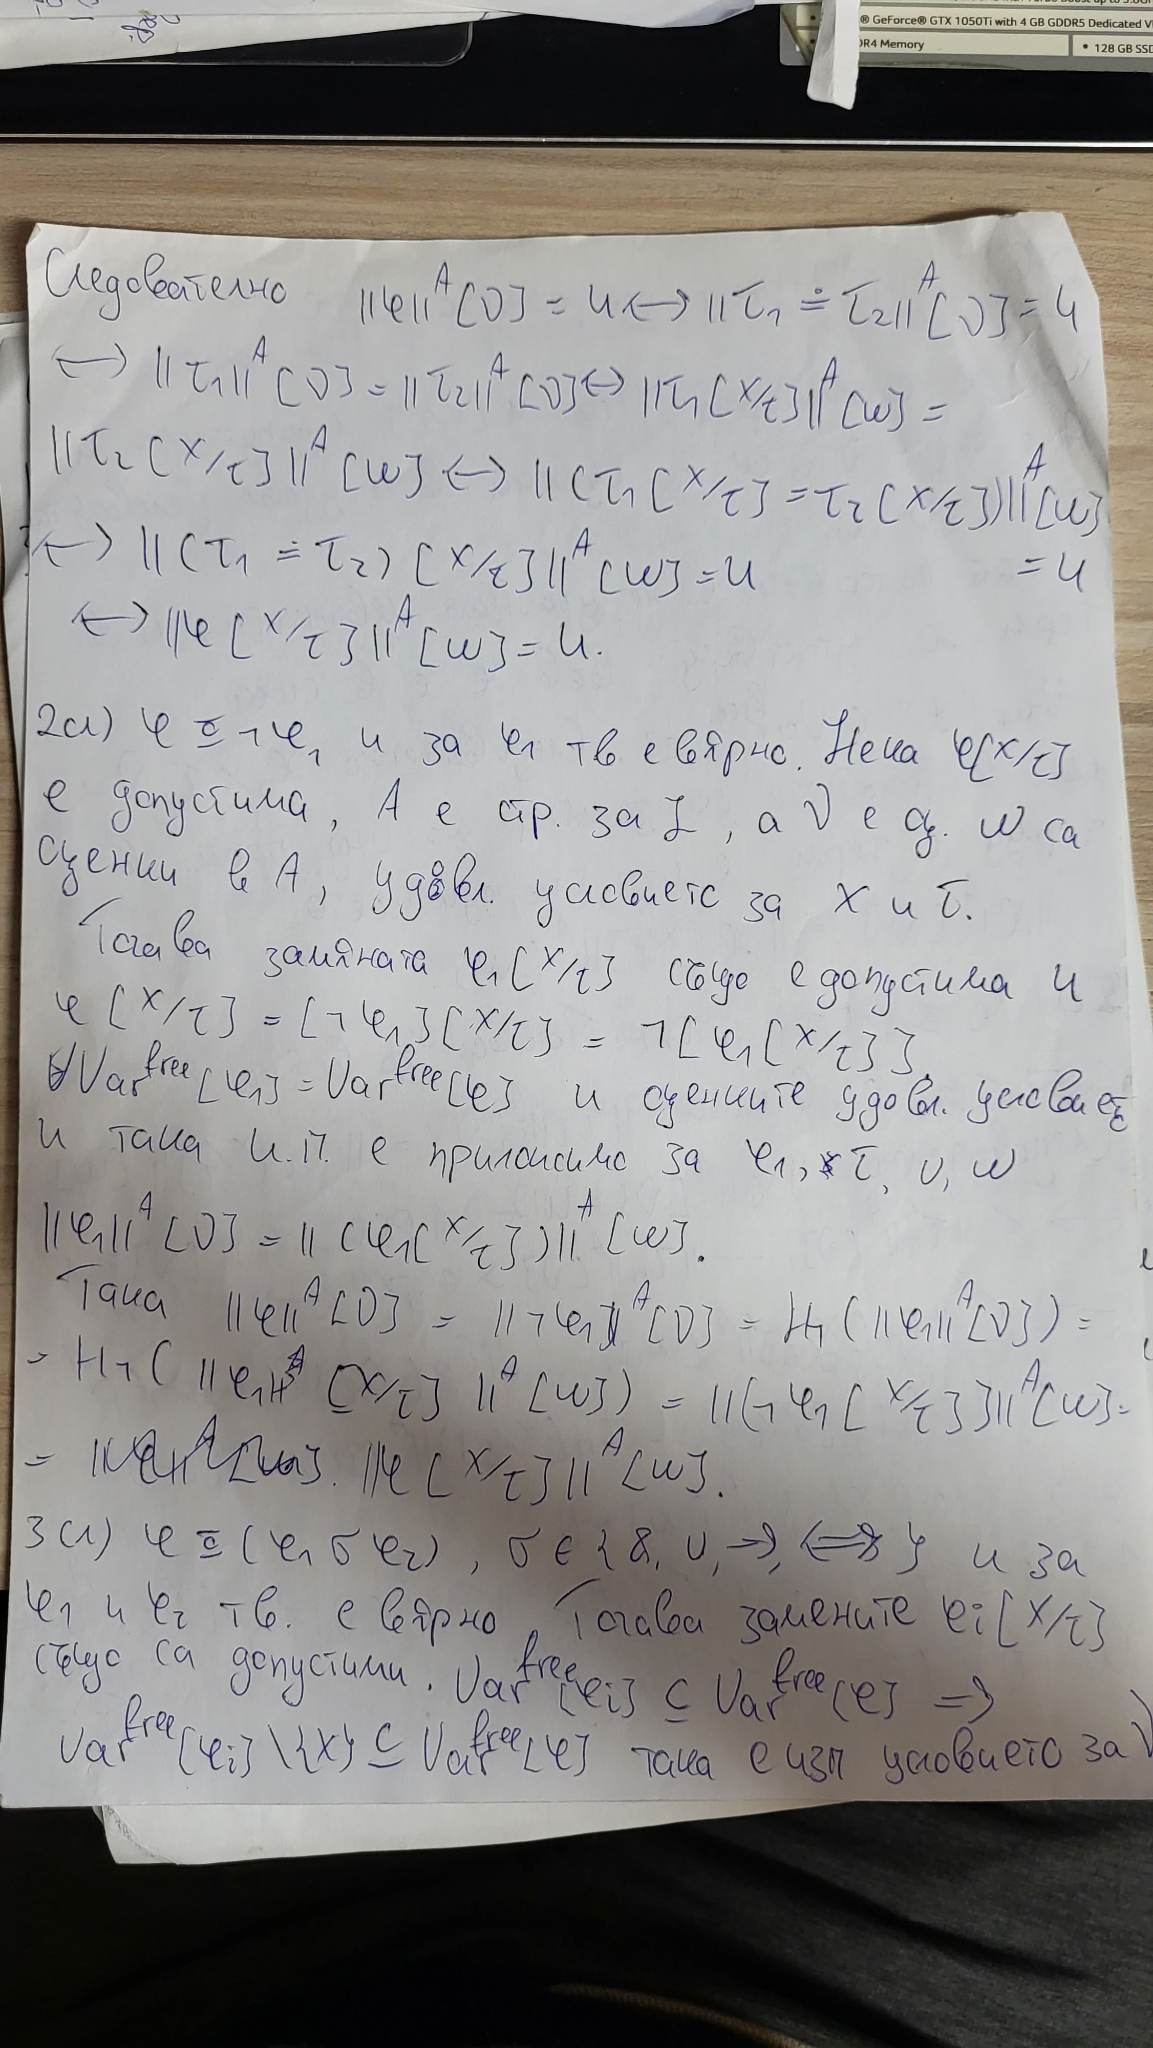 ® GeForce® GTX 1050Ti with 4 GB GDDR5 Dedicated V
DR4 Memory
• 128 GB SSD
Следователно ||φ||ᴬ[υ] = И ↔ ||τ₁ ≐ τ₂||ᴬ[υ] = И
↔ ||τ₁||ᴬ[υ] = ||τ₂||ᴬ[υ] ↔ ||τ₁[x/τ]||ᴬ[w] =
||τ₂[x/τ]||ᴬ[w] ↔ ||(τ₁[x/τ] = τ₂[x/τ])||ᴬ[w]
= И
↔ ||(τ₁ ≐ τ₂)[x/τ]||ᴬ[w] = И
↔ ||φ[x/τ]||ᴬ[w] = И.
2сл) φ ≗ ¬φ₁ и за φ₁ тв е вярно. Нека φ[x/τ]
е допустима, A е стр. за L, а υ е w са
оценки в A, удовл. условието за x и τ.
Тогава замяната φ₁[x/τ] също е допустима и
φ[x/τ] = [¬φ₁][x/τ] = ¬[φ₁[x/τ]].
Varᶠʳᵉᵉ[φ₁] = Varᶠʳᵉᵉ[φ] и оценките удовл. условието
и така и.п. е приложимо за φ₁, τ, υ, w
||φ₁||ᴬ[υ] = ||(φ₁[x/τ])||ᴬ[w].
Така ||φ||ᴬ[υ] = ||¬φ₁||ᴬ[υ] = H¬(||φ₁||ᴬ[υ]) =
= H¬(||φ₁[x/τ]||ᴬ[w]) = ||[¬φ₁[x/τ]]||ᴬ[w] =
= ||φ[x/τ]||ᴬ[w].
3сл) φ ≗ (φ₁ σ φ₂), σ ∈ {&, ∪, ⇒, ⇔} и за
φ₁ и φ₂ тв. е вярно. Тогава замените φi[x/τ]
също са допустими. Varᶠʳᵉᵉ[φi] ⊆ Varᶠʳᵉᵉ[φ] ⇒
Varᶠʳᵉᵉ[φi]\{x} ⊆ Varᶠʳᵉᵉ[φ] така е изп условието за υ